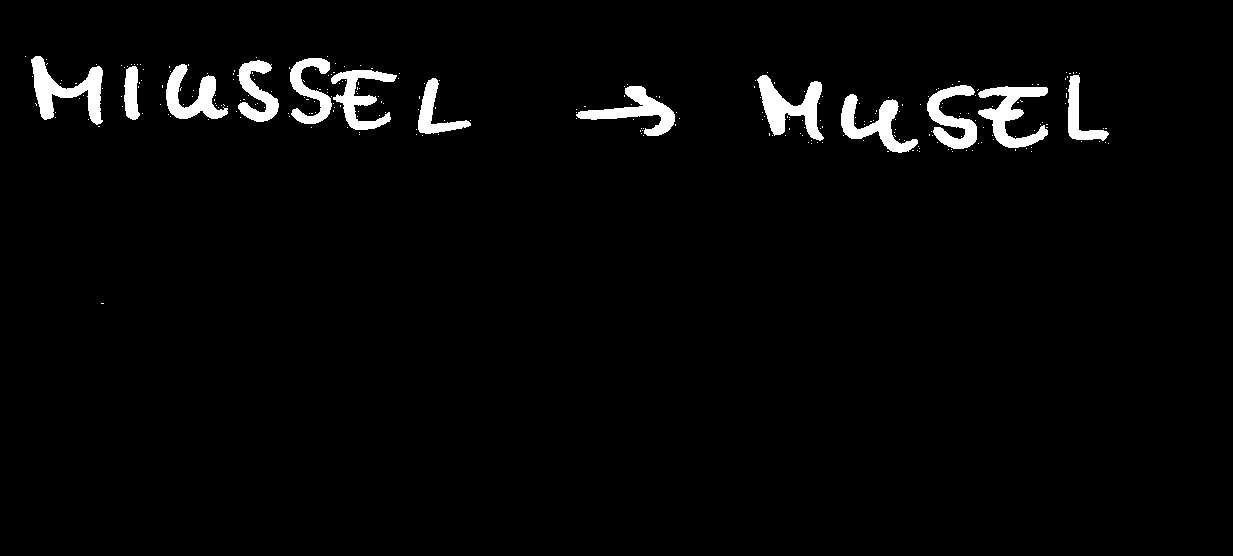 MIUSSEL → MUSEL